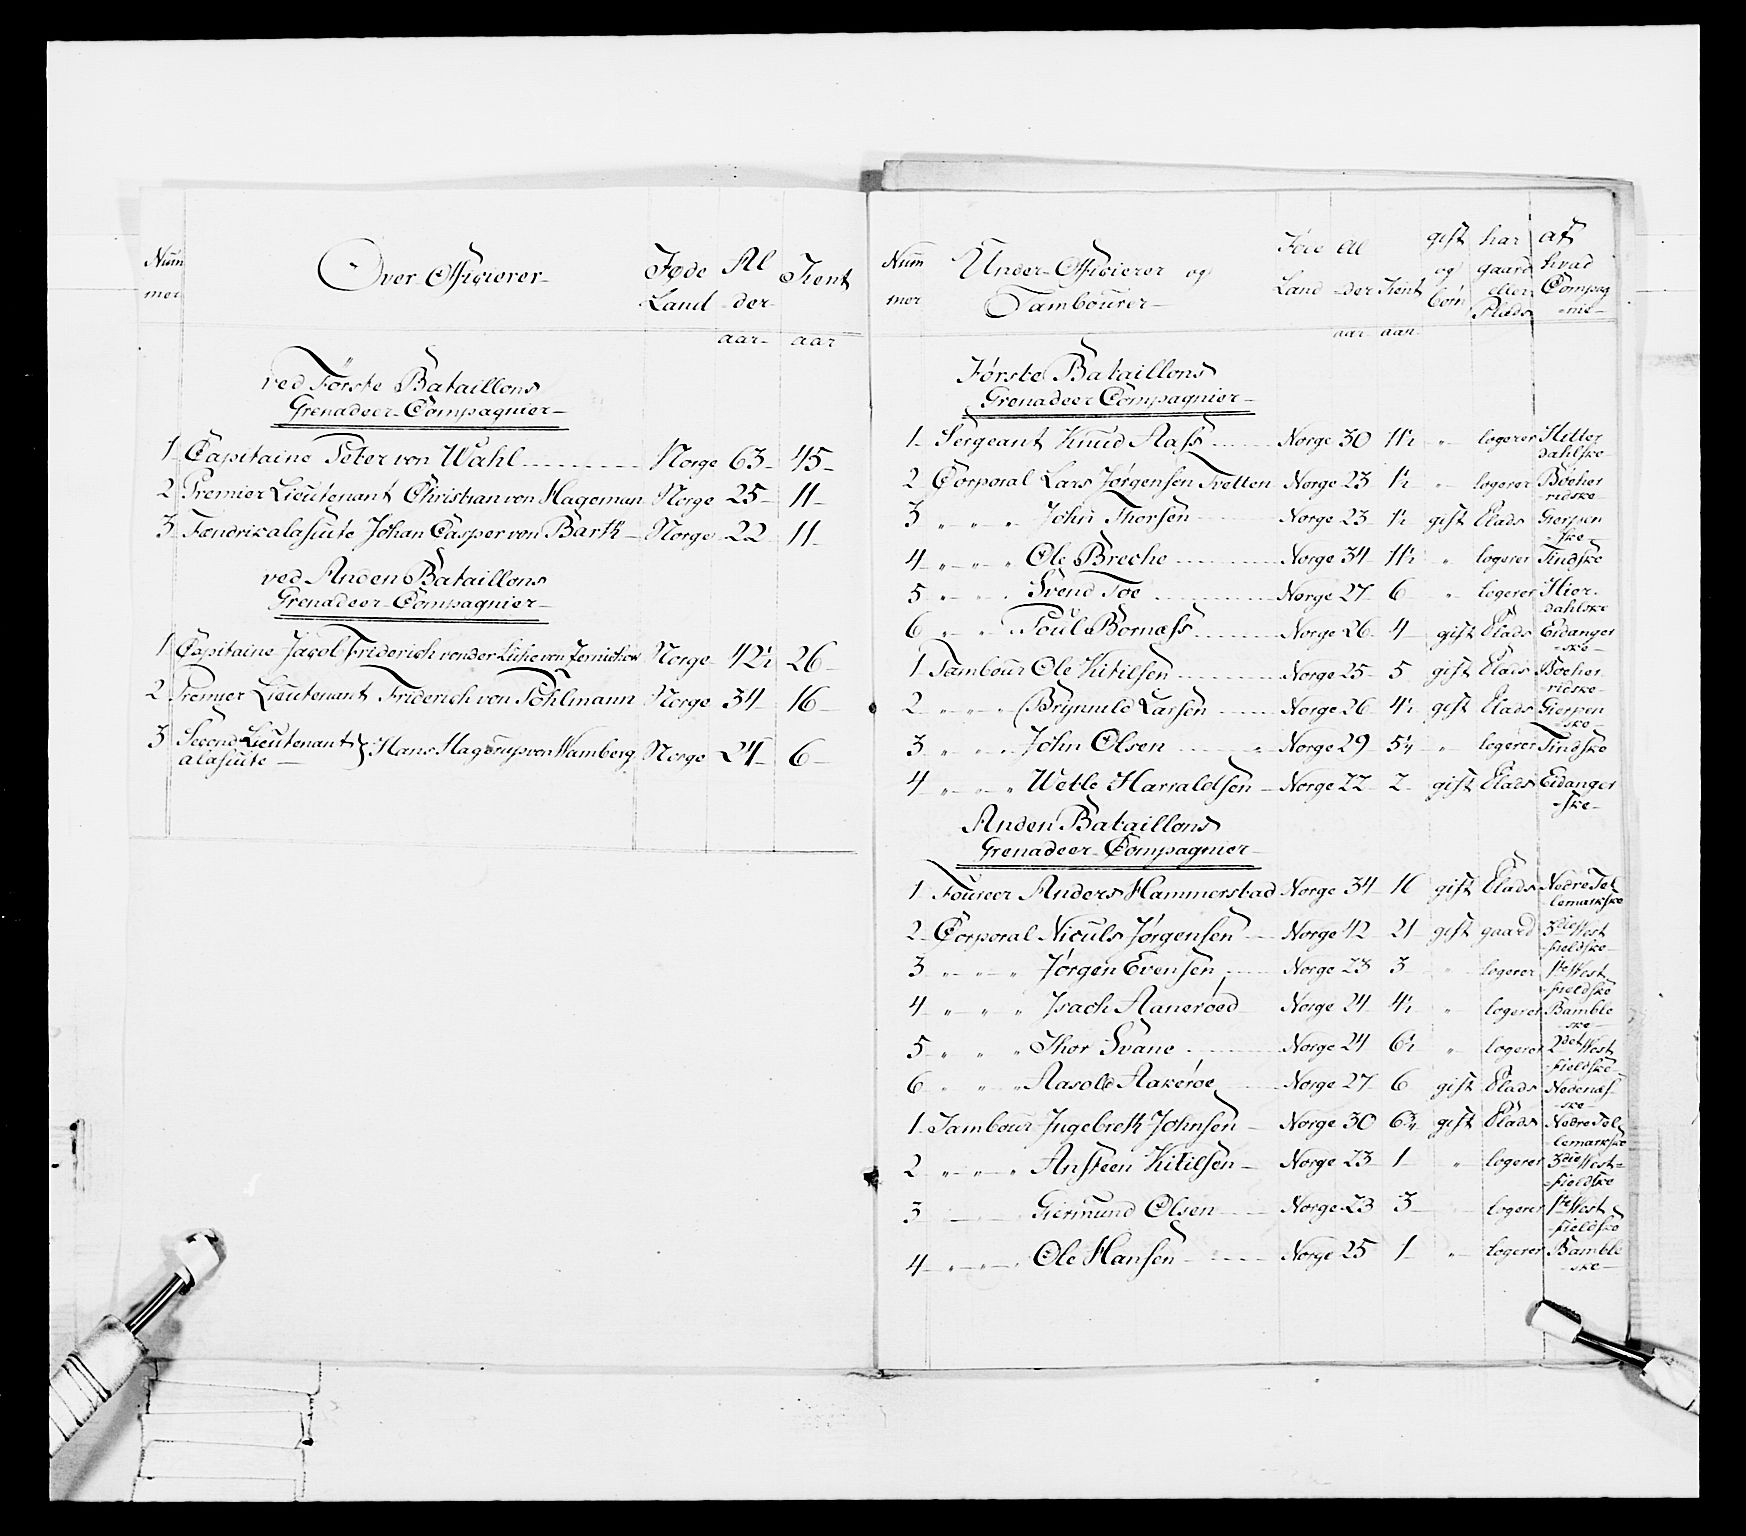 Num mer | Over Officierer | Føde Land | Al der | Tient
aar | aar
ved Første Bataillons
Grenadeer-Compagnier
1 Capitaine Peter von Wahl Norge 63 45
2 Premier Lieutenant Christian von Hageman Norge 25 11
3 Fændrik alasuite Johan Casper von Barth Norge 22 11
ved Anden Bataillons
Grenadeer-Compagnier
1 Capitaine Jacob Friderich von der Lühe von Norge 42½ 26
2 Premier Lieutenant Friderich von Pöhlmann Norge 34 16
3 Second Lieutenant alasuite } Hans Hagerup von Wamberg Norge 24 6
Num mer | Under-Officierer og Tambourer | Føde Land | Al der | Tient | gift og børn | har gaard eller Plads | af hvad Compag nie
aar | aar
Første Bataillons
Grenadeer Compagnier
1 Sergeant Knud Aass Norge 30 11½ " logerer Hitterdahlske
2 Corporal Lars Jørgensen Tvetten Norge 23 1½ " logerer Bøeherridske
3 " " " John Thorsen Norge 23 1½ gift Plads Gierpenske
4 " " " Ole Breche Norge 34 11½ " logerer Tindske
5 " " " Svend Toe Norge 27 6 " logerer Hierdahlske
6 " " Poul Bornæss Norge 26 4 gift Plads Eidangerske
1 Tambour Ole Kitilsen Norge 25 5 gift Plads Bøeherridske
2 " " " Brynnild Larsen Norge 26 4½ gift Plads Gierpenske
3 " " " John Olsen Norge 29 5¼ " logerer Tindske
4 " " " Wetle Harraldsen Norge 22 2 gift Plads Eidangerske
Anden Bataillons
Grenadeer-Compagnier
1 Foureer Anders Hammerstad Norge 34 16 gift Plads Nedre Tellemarkske
2 Corporal Niculs Jørgensen Norge 42 21 gift gaard 3die Westfieldske
3 " " " Jørgen Evensen Norge 23 3 " logerer 1ste Westfieldske
4 " " " Isach Aanerøed Norge 24 4½ " logerer Bambleske
5 " " " Thor Svane Norge 24 6½ " logerer 2det Westfieldske
6 " " " Aasold Aakerøe Norge 27 6 gift Plads Nedenæsske
1 Tambour Ingebret Johnsen Norge 30 6¾ gift Plads Nedre Tellemarkske
2 " " " Ansteen Kitilsen Norge 23 1 " logerer 3die Westfieldske
3 Giermund Olsen Norge 23 3 logerer 1ste Westfieldske
4 " " " Ole Hansen Norge 25 1 " logerer Bambleske